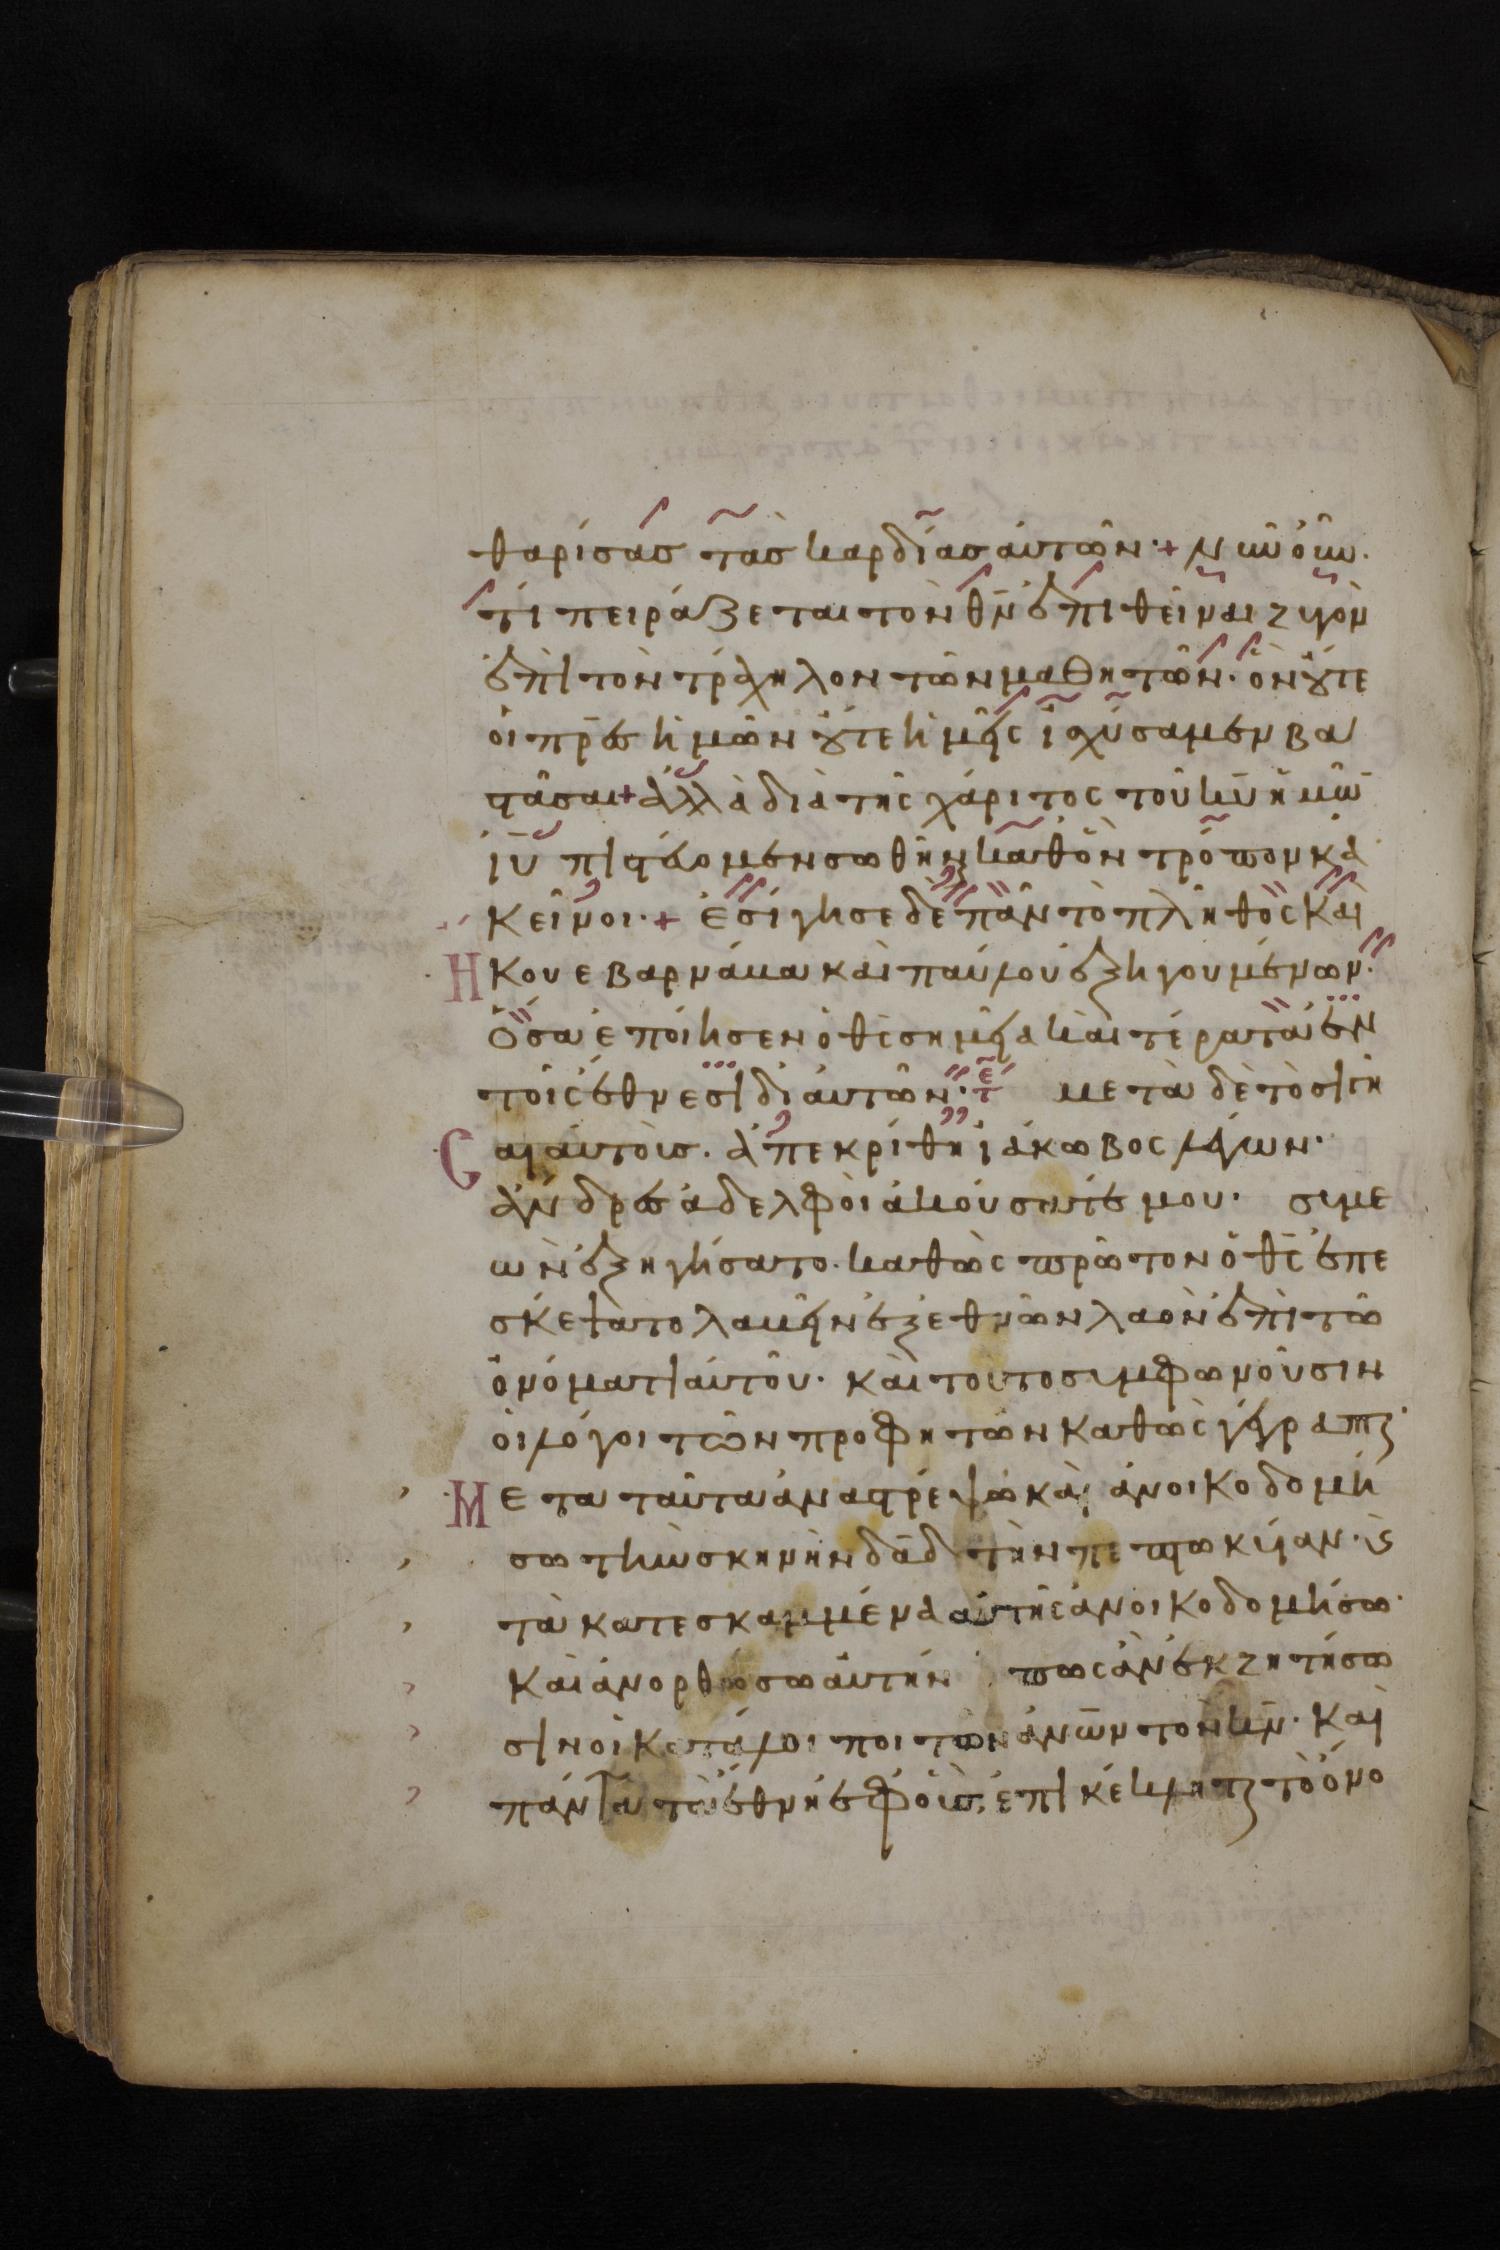 θαρίσασ τὰσ καρδίασ ἀυτῶν·+ Νῦν ὀῦν·
τί πειράζεται τὸν θν̄ ἐπιθεῖναι ζυγὸν
ἐπὶ τὸν τράχηλον τῶν μαθητῶν· ὃν ὄυτε
ὁι πρ̄εσ ἡμῶν ὄυτε ἡμεῖς ἰσχύσαμεν βα
στᾶσαι+ἀλλὰ διὰ τῆς χάριτος τοῦ κῡ ἡμῶ̄
ἰῡ πιστέυομεν σωθῆν̣αι καθ ὃν τρόπον κἀ
κεῖνοι·+ Ἐσίγησε δὲ πᾶν τὸ πλῆθος καὶ
Ηκουε βαρνάβα καὶ παύλου ἐξηγουμένων·
Ὅσα ἐποίησεν ὁ θς̄ σημεῖα καὶ τέρατα ἐν
τοῖς ἔθνεσι δι ἀυτῶν· τε̄ μετὰ δὲ τὸ σιγῆ
Σαι ἀυτοὺσ. ἀπεκρίθη ἰάκωβος λέγων·
ἄνδρεσ ἀδελφοὶ ἀκούσατέ μου· συμε
ὼν ἐξηγήσατο. καθὼς πρῶτον ὁ θς̄ ἐπε
σκέψατο λαβεῖν ἐξ ἐθνῶν λαὸν ἐπὶ τῶ
ὀνόματι ἀυτοῦ· καὶ τούτο συμφωνοῦσιν
ὁι λόγοι τῶν προφητῶν καθὼς γέγραπται·
Μετα ταῦτα ἀναστρέψω καὶ ἀνοικοδομή
σω τὴν σκηνὴν δᾱδ τὴν πεπτωκυῖαν· καὶ
τὰ κατεσκαμμένα ἀυτῆς ἀνοικοδομήσω·
καὶ ἀνορθώσω ἀυτὴν ὅπως ἂν ἐκζητήσω
σιν ὁι κατάλοιποι τῶν ἀνω̄ν τὸν κν̄· καὶ
πάντα τὰ ἔθνη ἐφ ὁὺσ ἐπικέκληται τὸ ὄνο